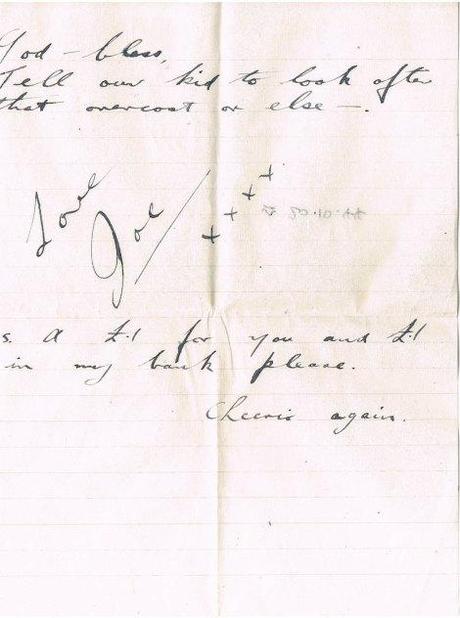 God - bless,
Tell our kid to look after
that overcoat or else -.
Love
Joe
x x x x
s. A £1 for you and £1
in my bank please.
Cheerio again.